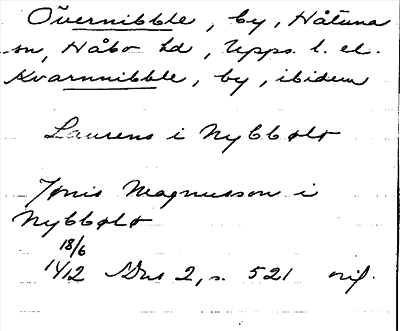 Övernibble, by, Håtuna
sn, Håbo hd, Upps. l. el.
Kvarnnibble, by, ibidem
Laurens i Nybbølt
Jønis Magnusson i
Nybbølt
18/6
1412 SDns 2, s. 521 orig.